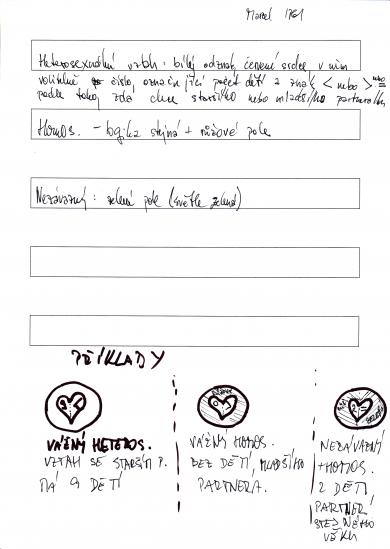 Marcel 1761
Heterosexuální vztah: bílý odznak, červené srdce v něm
volitelně číslo, označující počet dětí a znak < nebo > nebo =
podle toho, zda chce staršího nebo mladšího partnera/ku
Homos. - logika stejná + růžové pole
Nezávazný: zelené pole (světle zelené)
PŘÍKLADY
9
VÁŽNÝ HETEROS.
VZTAH SE STARŠÍM P.
MÁ 9 DĚTÍ
VÁŽNÝ HOMOS.
BEZ DĚTÍ, MLADŠÍHO
PARTNERA.
NEZÁVAZNÝ
+HOMOS.
2 DĚTI
PARTNER
STEJNÉHO
VĚKU